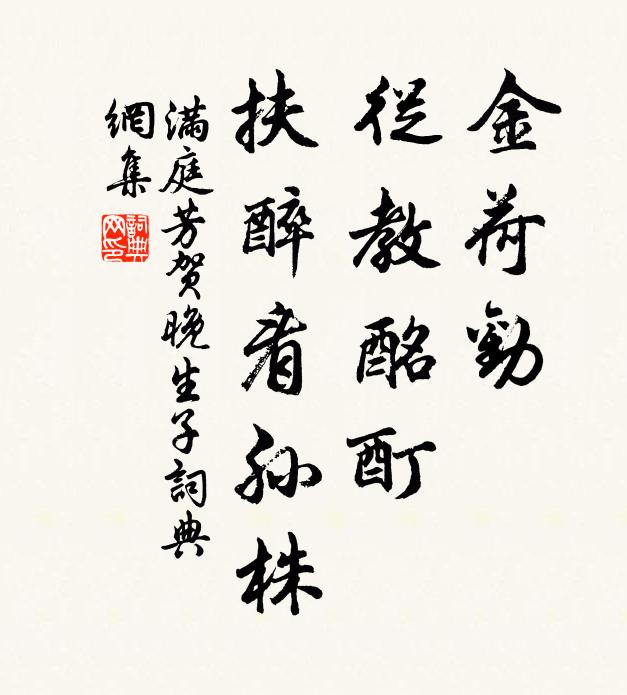 金荷勸
從教酩酊
扶醉看孫株
滿庭芳賀晚生子詞典
網集
詞典
网印